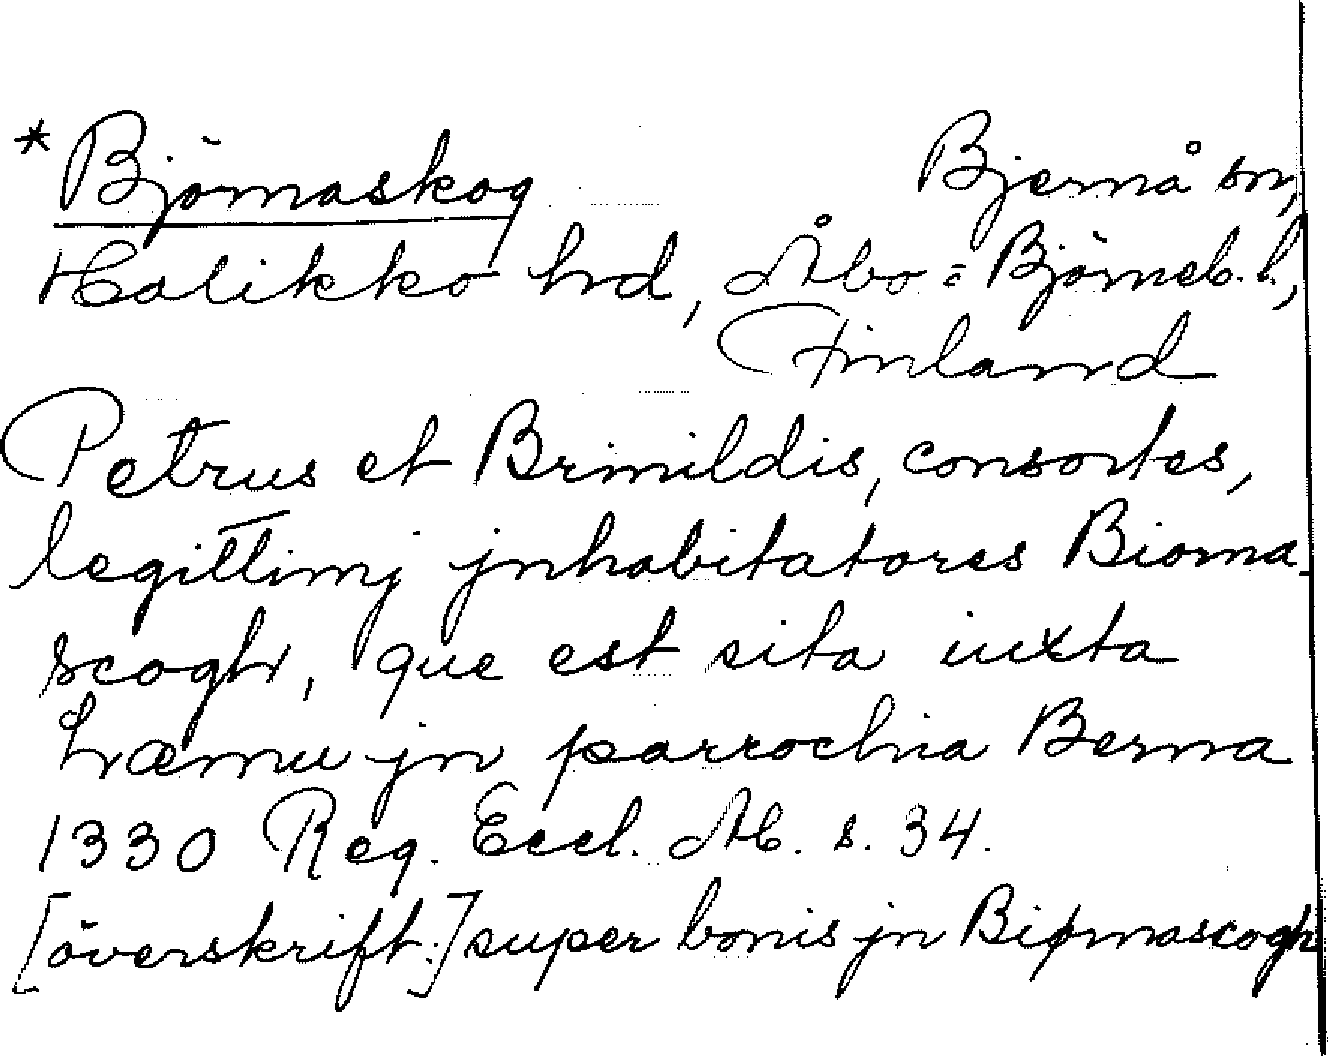 * Björnaskog Bjernå sn,
Halikko hd, Åbo=Björneb. l,
Finland
Petrus et Brinildis, consortes,
legittimj jnhabitatores Biorna-
scogh, que est sita iuxta
hæmu jn parrochia Berna
1330 Reg. Eccl. Ab. s. 34.
[överskrift:] super bonis jn Biørnascogh